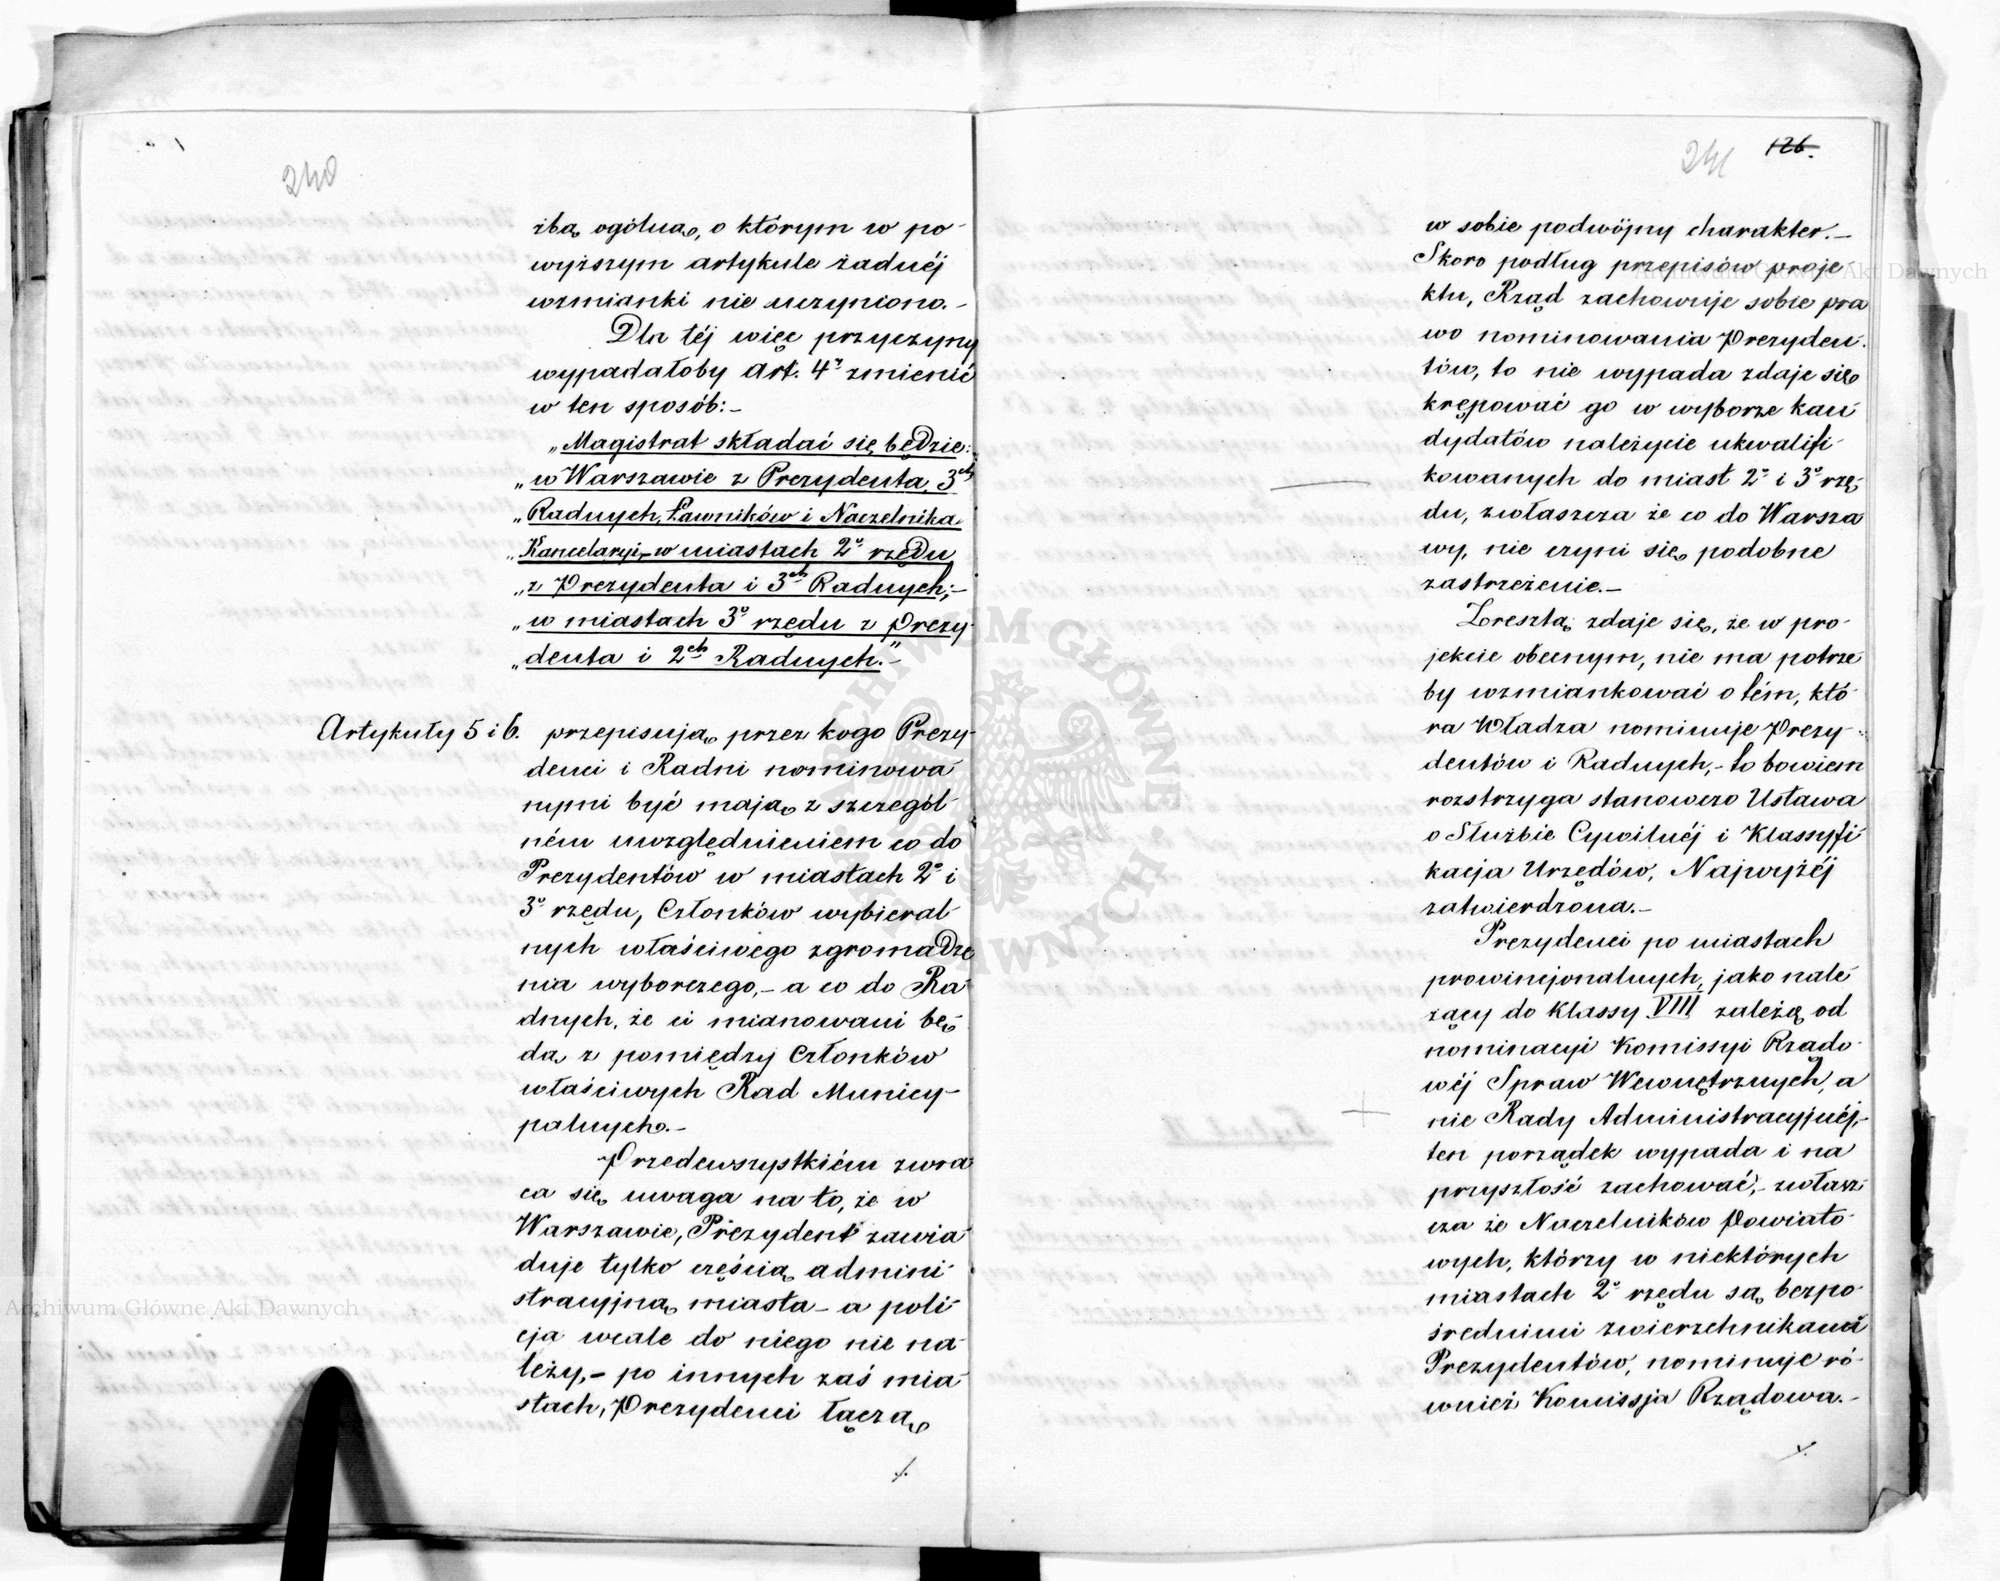 240
żbą ogólną, o którym w po-
wyższym artykule żadnéj
wzmianki nie uczyniono.-
Dla téj więc przyczyny
wypadałoby art. 4ʸ zmienić
w ten sposób:-
„Magistrat składać się będzie:
„w Warszawie z Prezydenta, 3ch
„Radnych, Ławników i Naczelnika
„Kancelaryi,-w miastach 2º rzędu
„z Prezydenta i 3ch Radnych;-
„w miastach 3º rzędu z Prezy-
„denta i 2ch Radnych."-
Artykuły 5 i 6. przepisują, przez kogo Prezy-
denci i Radni nominowa-
nymi być mają, z szczegól-
ném uwzględnieniem co do
Prezydentów w miastach 2º i
3º rzędu, Członków wybieral-
nych właściwego zgromadze
nia wyborczego,- a co do Ra-
dnych, że ci mianowani bę-
dą z pomiędzy Członków
właściwych Rad Municy-
palnych.-
Przedewszystkiém zwra
ca się uwaga na to, że w
Warszawie, Prezydent zawia-
duje tylko częścią admini-
stracyjną miasta - a poli-
cja wcale do niego nie na-
leży,- po innych zaś mia-
stach, Prezydenci łączą
./.
241 126.
w sobie podwójny charakter.-
Skoro podług przepisów proje-
ktu, Rząd zachowuje sobie pra
wo nominowania Prezyden-
tów, to nie wypada zdaje się
krępować go w wyborze kan-
dydatów należycie ukwalifi-
kowanych do miast 2º i 3º rzę-
du, zwłaszcza że co do Warsza
wy, nie czyni się podobne
zastrzeżenie.-
Zresztą zdaje się, że w pro-
jekcie obecnym, nie ma potrze-
by wzmiankować o tém, któ-
ra Władza nominuje Prezy-
dentów i Radnych,- to bowiem
rozstrzyga stanowczo Ustawa
o Służbie Cywilnéj i Klassyfi-
kacja Urzędów, Najwyżéj
zatwierdzona.-
Prezydenci po miastach
prowincjonalnych, jako nale-
żący do Klassy VIII zależą od
nominacyi Komissyi Rządo-
wéj Spraw Wewnętrznych, a
nie Rady Administracyjnéj,-
ten porządek wypada i na
przyszłość zachować,- zwłasz-
cza że Naczelników Powiato-
wych, którzy w niektórych
miastach 2º rzędu są bezpo-
średnimi zwierzchnikami
Prezydentów, nominuje ró-
wnież Komissja Rządowa.-
./.
Archiwum Główne Akt Dawnych
Archiwum Główne Akt Dawnych
ARCHIWUM GŁÓWNE AKT DAWNYCH